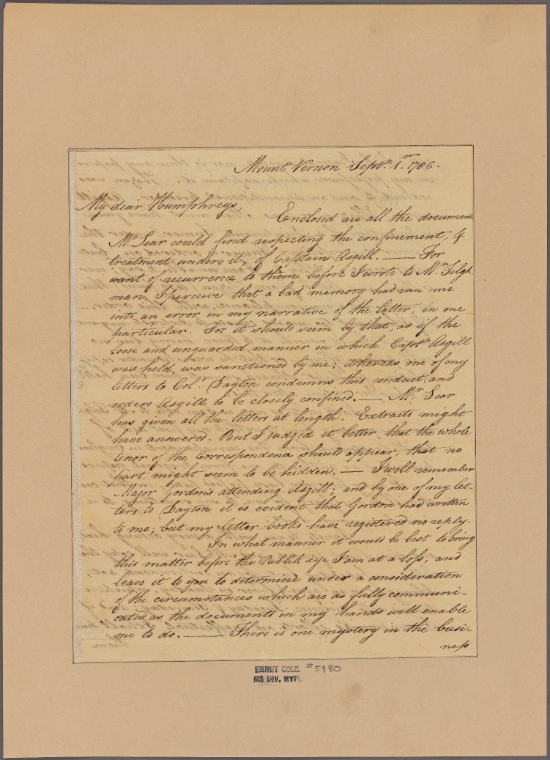 Mount Vernon Sept. 1st. 1786.
My dear Humphreys,
Enclosed are all the document
Mr. Lear could find respecting the confinement, &
treatment under it, of Captain Asgill. — For
want of recurrence to them before I wrote to Mr. Tilgh
man, I perceive that a bad memory had run me
into an error in my narrative of the latter, in one
particular. For it should seem by that, as if the
loose and unguarded manner in which Capt. Asgill
was held, was sanctioned by me; whereas one of my
letters to Col. Dayton condemns this conduct, and
orders Asgill to be closely confined. — Mr. Lear
has given all the letters at length. Extracts might
have answered. But I judged it better, that the whole
tenor of the Correspondence should appear, that no
part might seem to be hidden. — I well remember
Major Gordon's attending Asgill; and by one of my let-
ters to Dayton it is evident that Gordon had written
to me; but my letter books have registered no reply.
In what manner it would be best to bring
this matter before the Publick eye I am at a loss, and
leave it to you to determine under a consideration
of the circumstances which are as fully communi-
cated as the documents in my hands will enable
me to do. — There is one mystery in the busi-
ness
EMMET COLL. #5980
MS DIV. NYPL